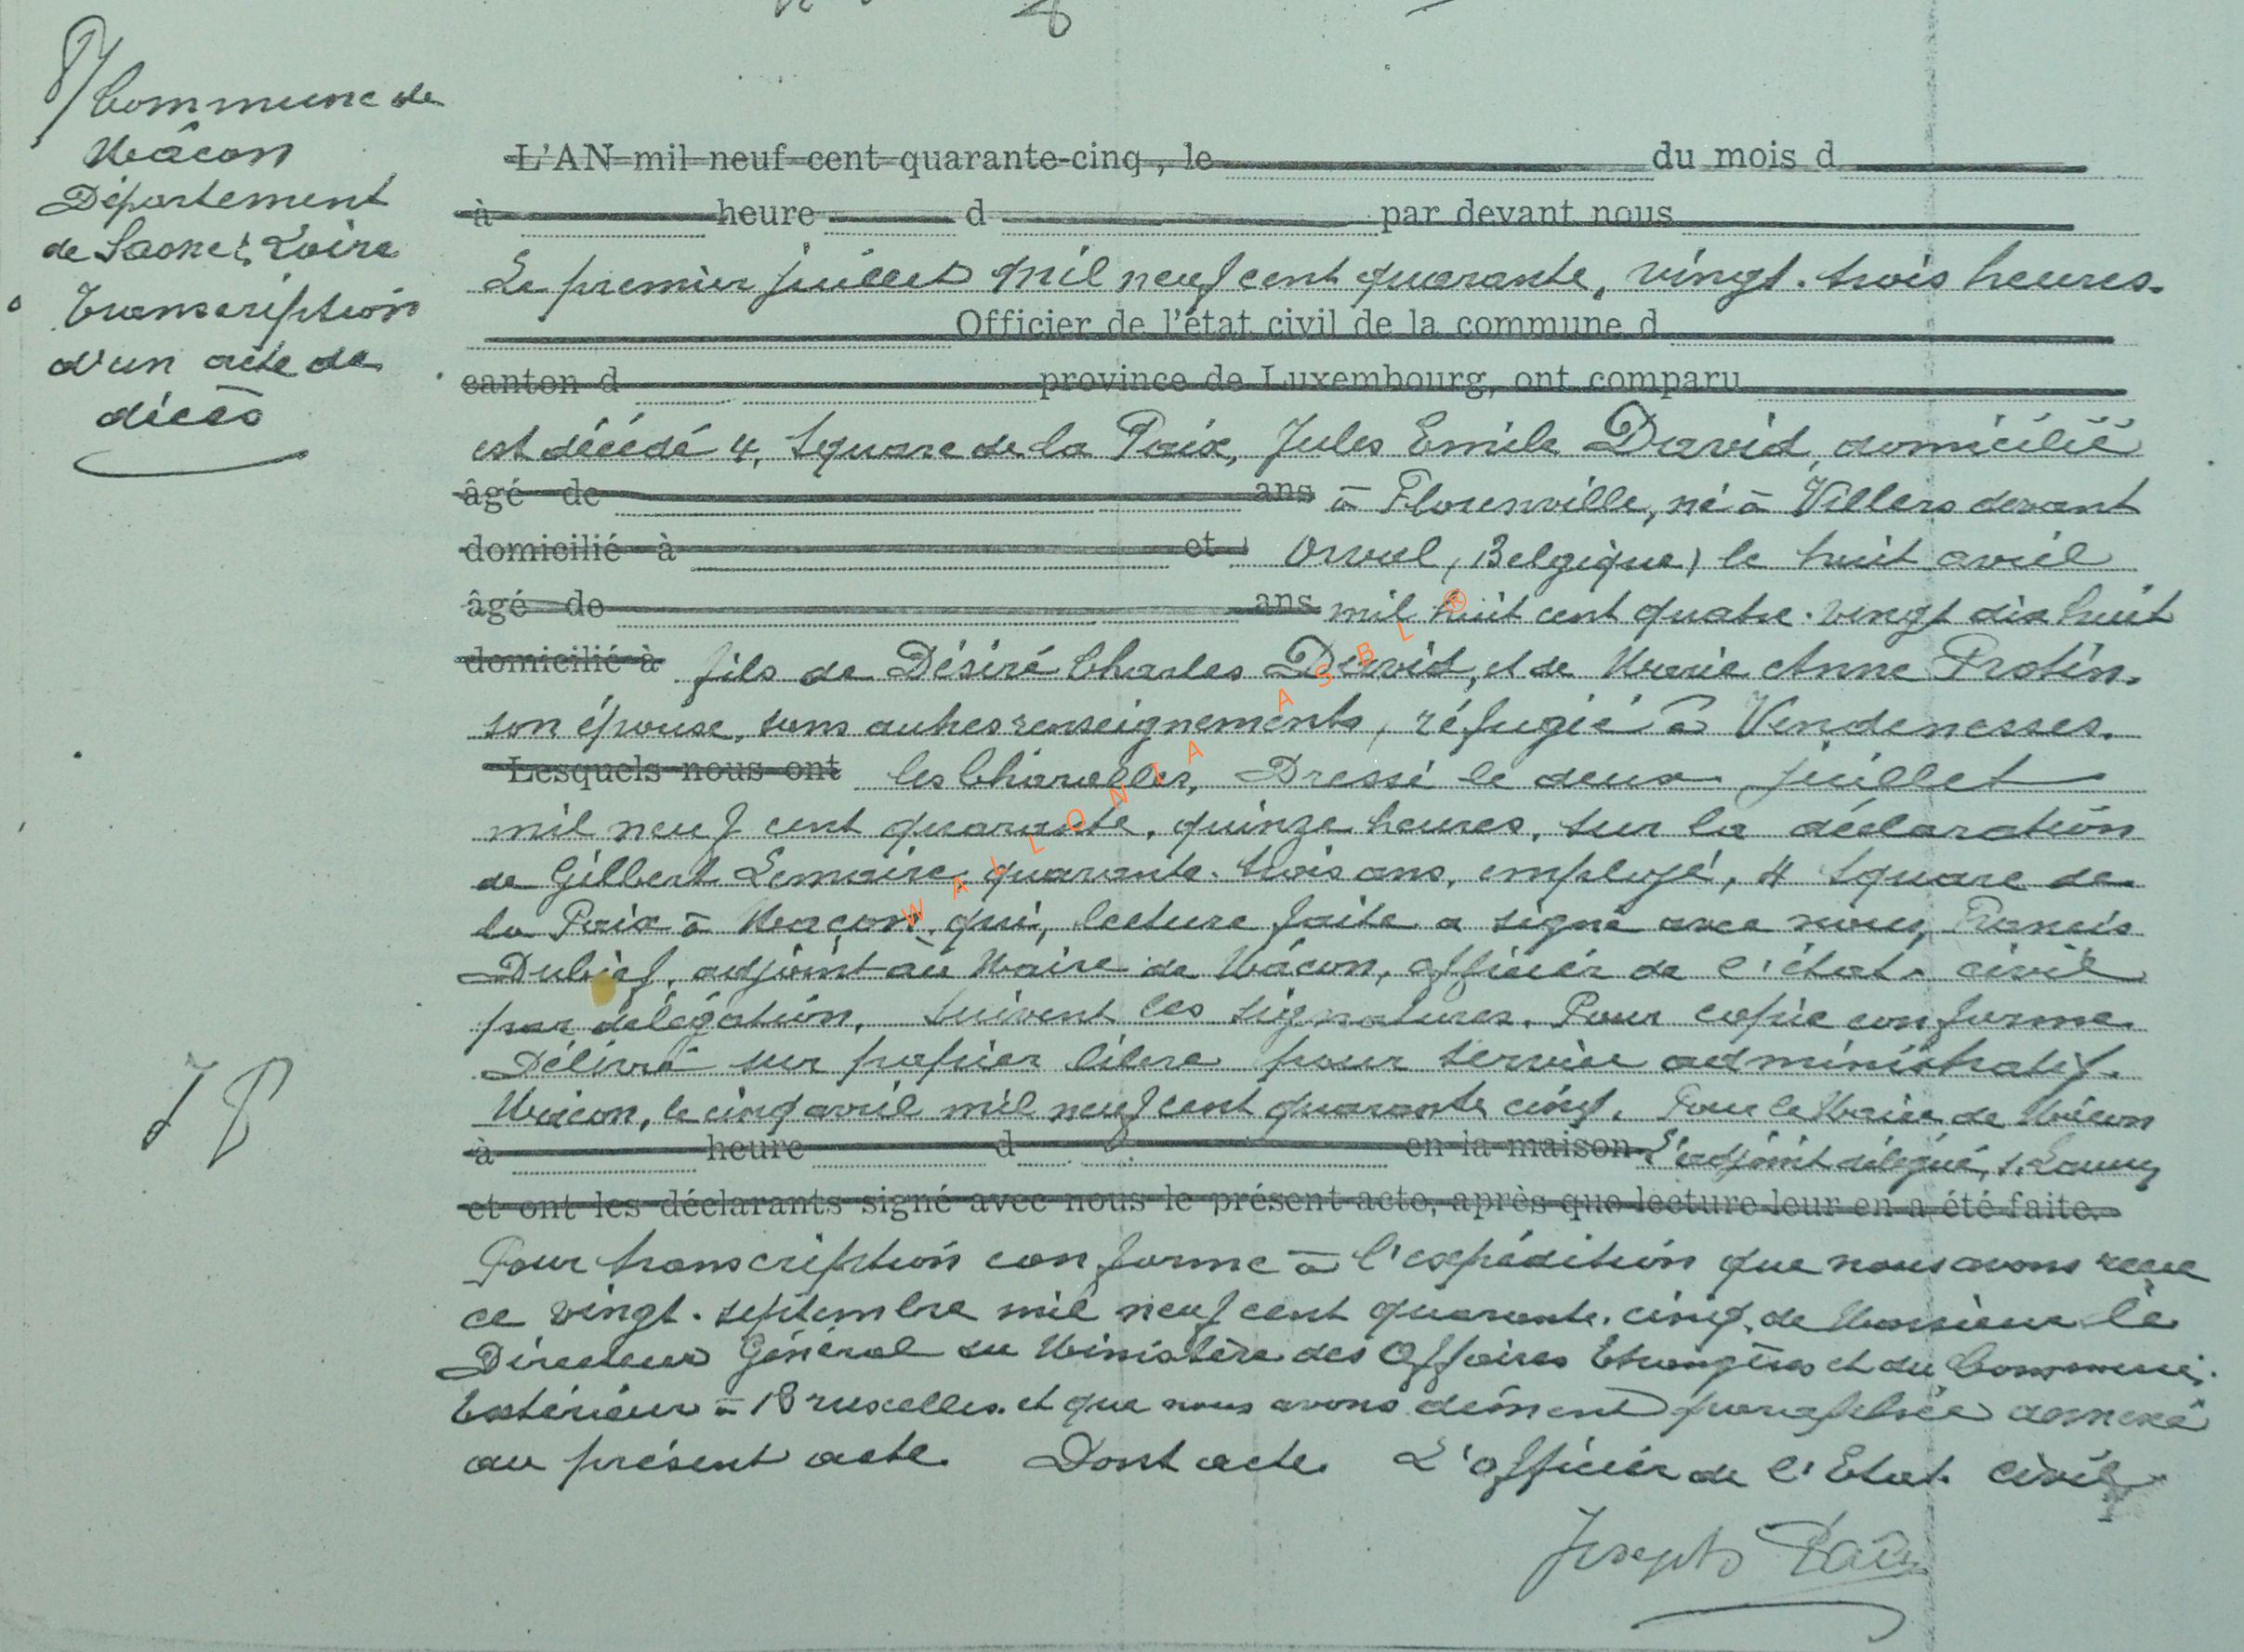 Commune de
Mâcon
Département
de Saone & Loire
Transcription
d'un acte de
décès
L'AN mil neuf cent quarante-cinq, le du mois d
à heure d par devant nous
Le premier juillet mil neuf cent quarante, vingt-trois heures.
Officier de l'état civil de la commune d
canton d province de Luxembourg, ont comparu
est décédé 4, Square de la Paix, Jules Emile David, domicilié
âgé de ans à Florenville, né à Villers devant
domicilié à et Orval, (Belgique) le huit avril
âgé de ans mil huit cent quatre-vingt dix huit
domicilié à fils de Désiré Charles David, et de Marie Anne Protin,
son épouse, sans autres renseignements, réfugié à Vendenesses.
Lesquels nous ont les Charolles, Dressé le deux juillet
mil neuf cent quarante, quinze heures, sur la déclaration
de Gilbert Lemaire, quarante-trois ans, employé, 4 Square de
la Paix à Macon, qui, lecture faite a signé avec nous, Francis
Dubief, adjoint au Maire de Mâcon, officier de l'état civil
par délégation. Suivent les signatures. Pour copie conforme
Délivré sur papier libre pour service administratif.
Mâcon, le cinq avril mil neuf cent quarante cinq. Pour le Maire de Mâcon
à heure d en la maison L'adjoint délégué, s.
et ont les déclarants signé avec nous le présent acte, après que lecture leur en a été faite.
Pour transcription conforme à l'expédition que nous avons reçue
ce vingt-septembre mil neuf cent quarante-cinq, de Monsieur le
Directeur Général du Ministère des Affaires Etrangères et du Commerce
Extérieur à Bruxelles et que nous avons dûment paraphée annexé
au présent acte. Dont acte. L'officier de l'Etat civil
Joseph
JP
WALLONIA ASBL ®